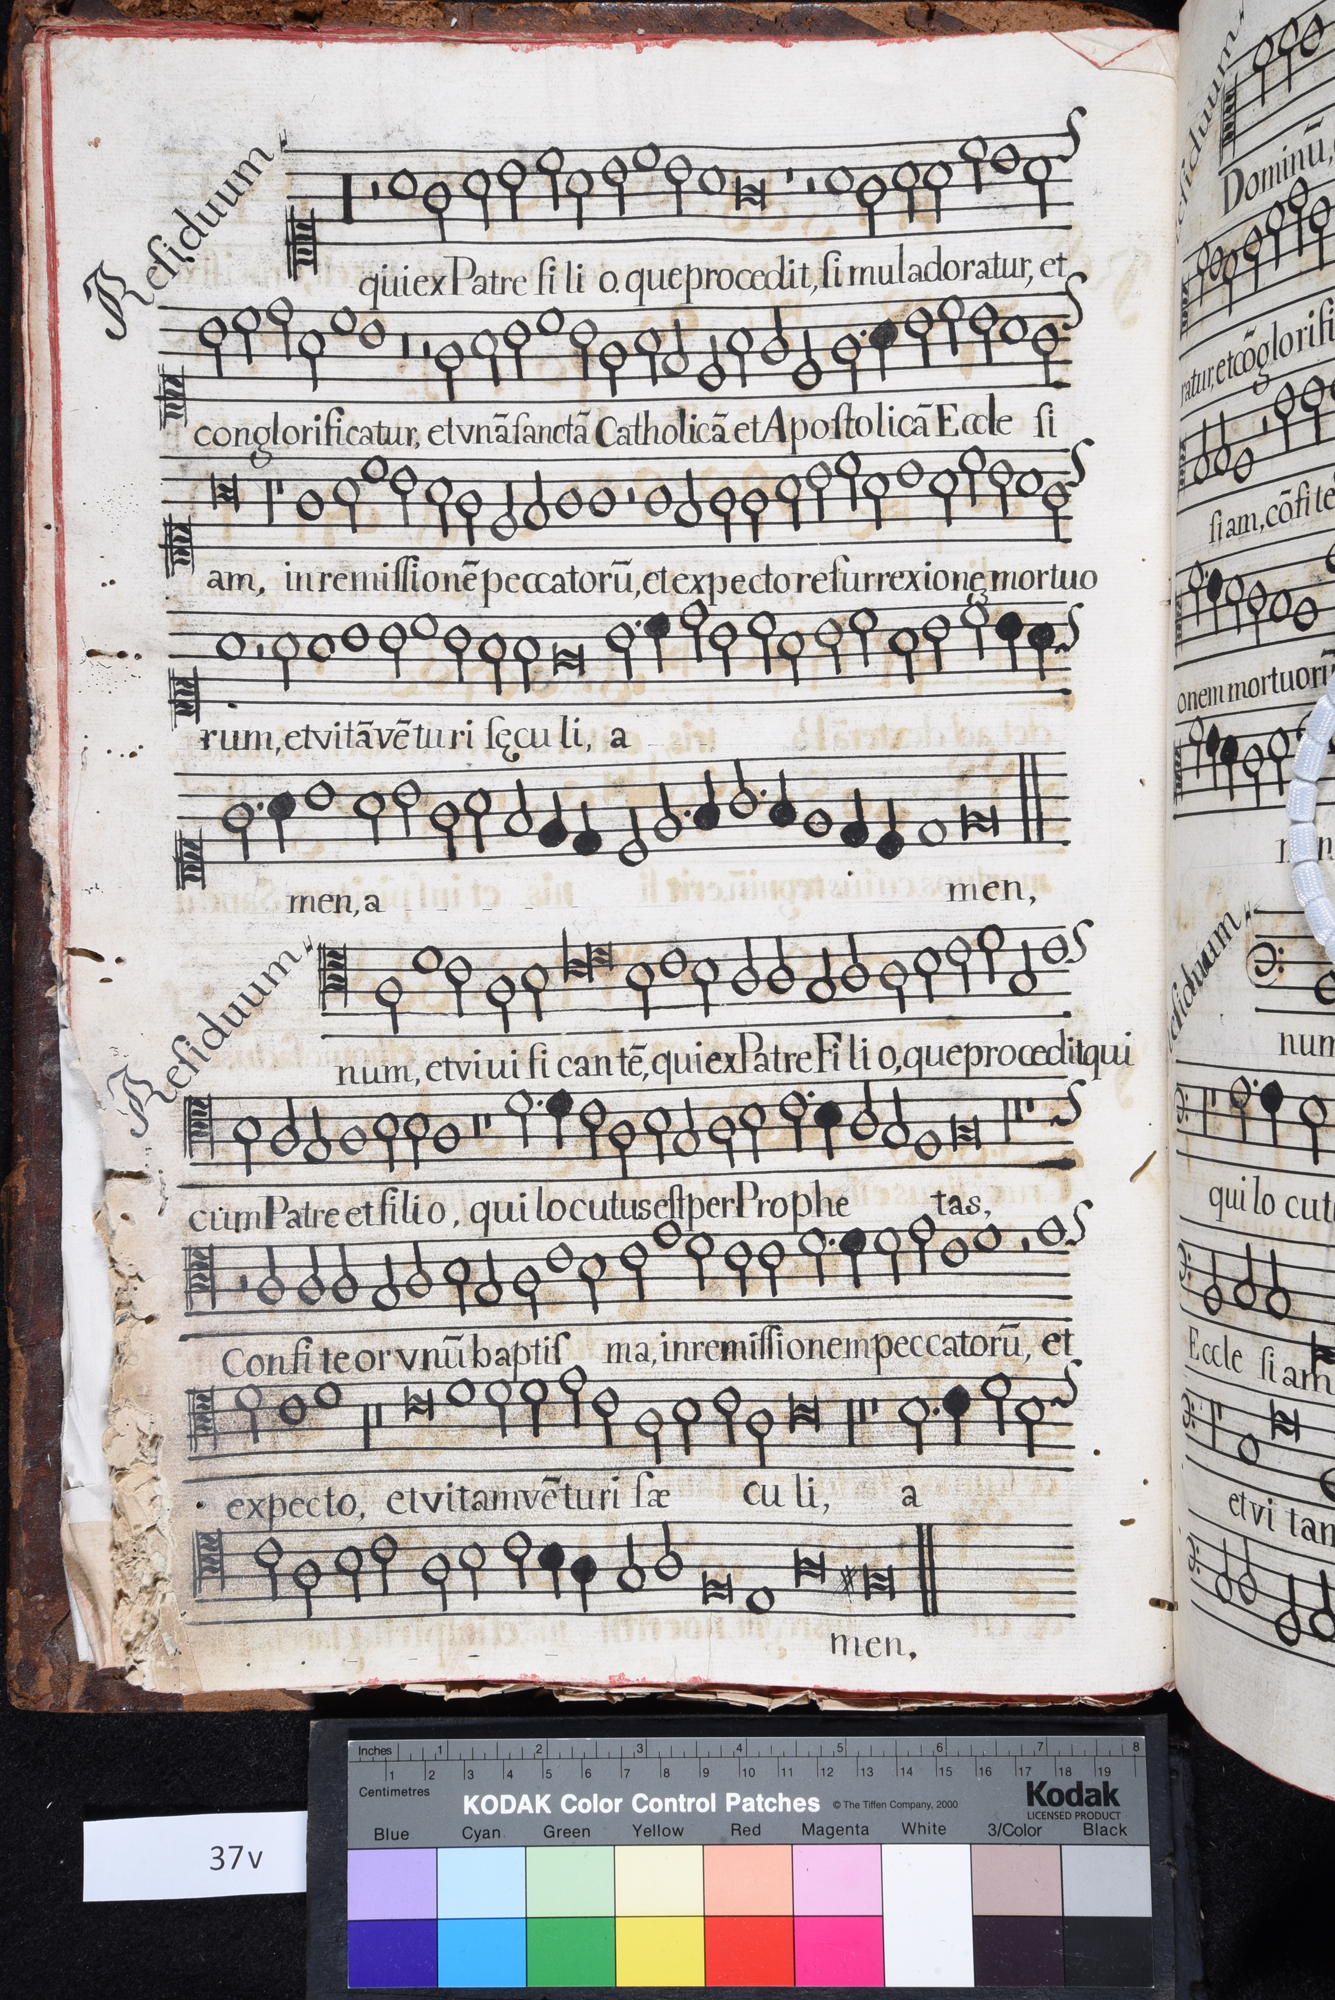 Residuum
qui ex Patre fi li o. que procedit, si mul adoratur, et
conglorificatur, et vnã sanctã Catholicã et Apostolicã Eccle si
am, in remissionẽ peccatorũ, et expecto resurrexionẽ mortuo
rum, et vitã vẽtu ri sęcu li, a
men, a men,
Residuum
num, et viui fi can tẽ, qui ex Patre Fi li o, que procedit qui
cum Patre et filio, qui locutus est per Prophe tas,
Confi teor vnũ baptis ma, in remissionem peccatorũ, et
expecto, et vitam vẽturi sæ cu li, a
men,
esiduum
Dominũ,
ratur, et cõglorifi
si am, cõfi te
onem mortuorũ
esiduum
num
qui lo cut
Eccle si am
et vi tam
37v
Inches 1 2 3 4 5 6 7 8
Centimetres 1 2 3 4 5 6 7 8 9 10 11 12 13 14 15 16 17 18 19
KODAK Color Control Patches © The Tiffen Company, 2000 Kodak
LICENSED PRODUCT
Blue Cyan Green Yellow Red Magenta White 3/Color Black